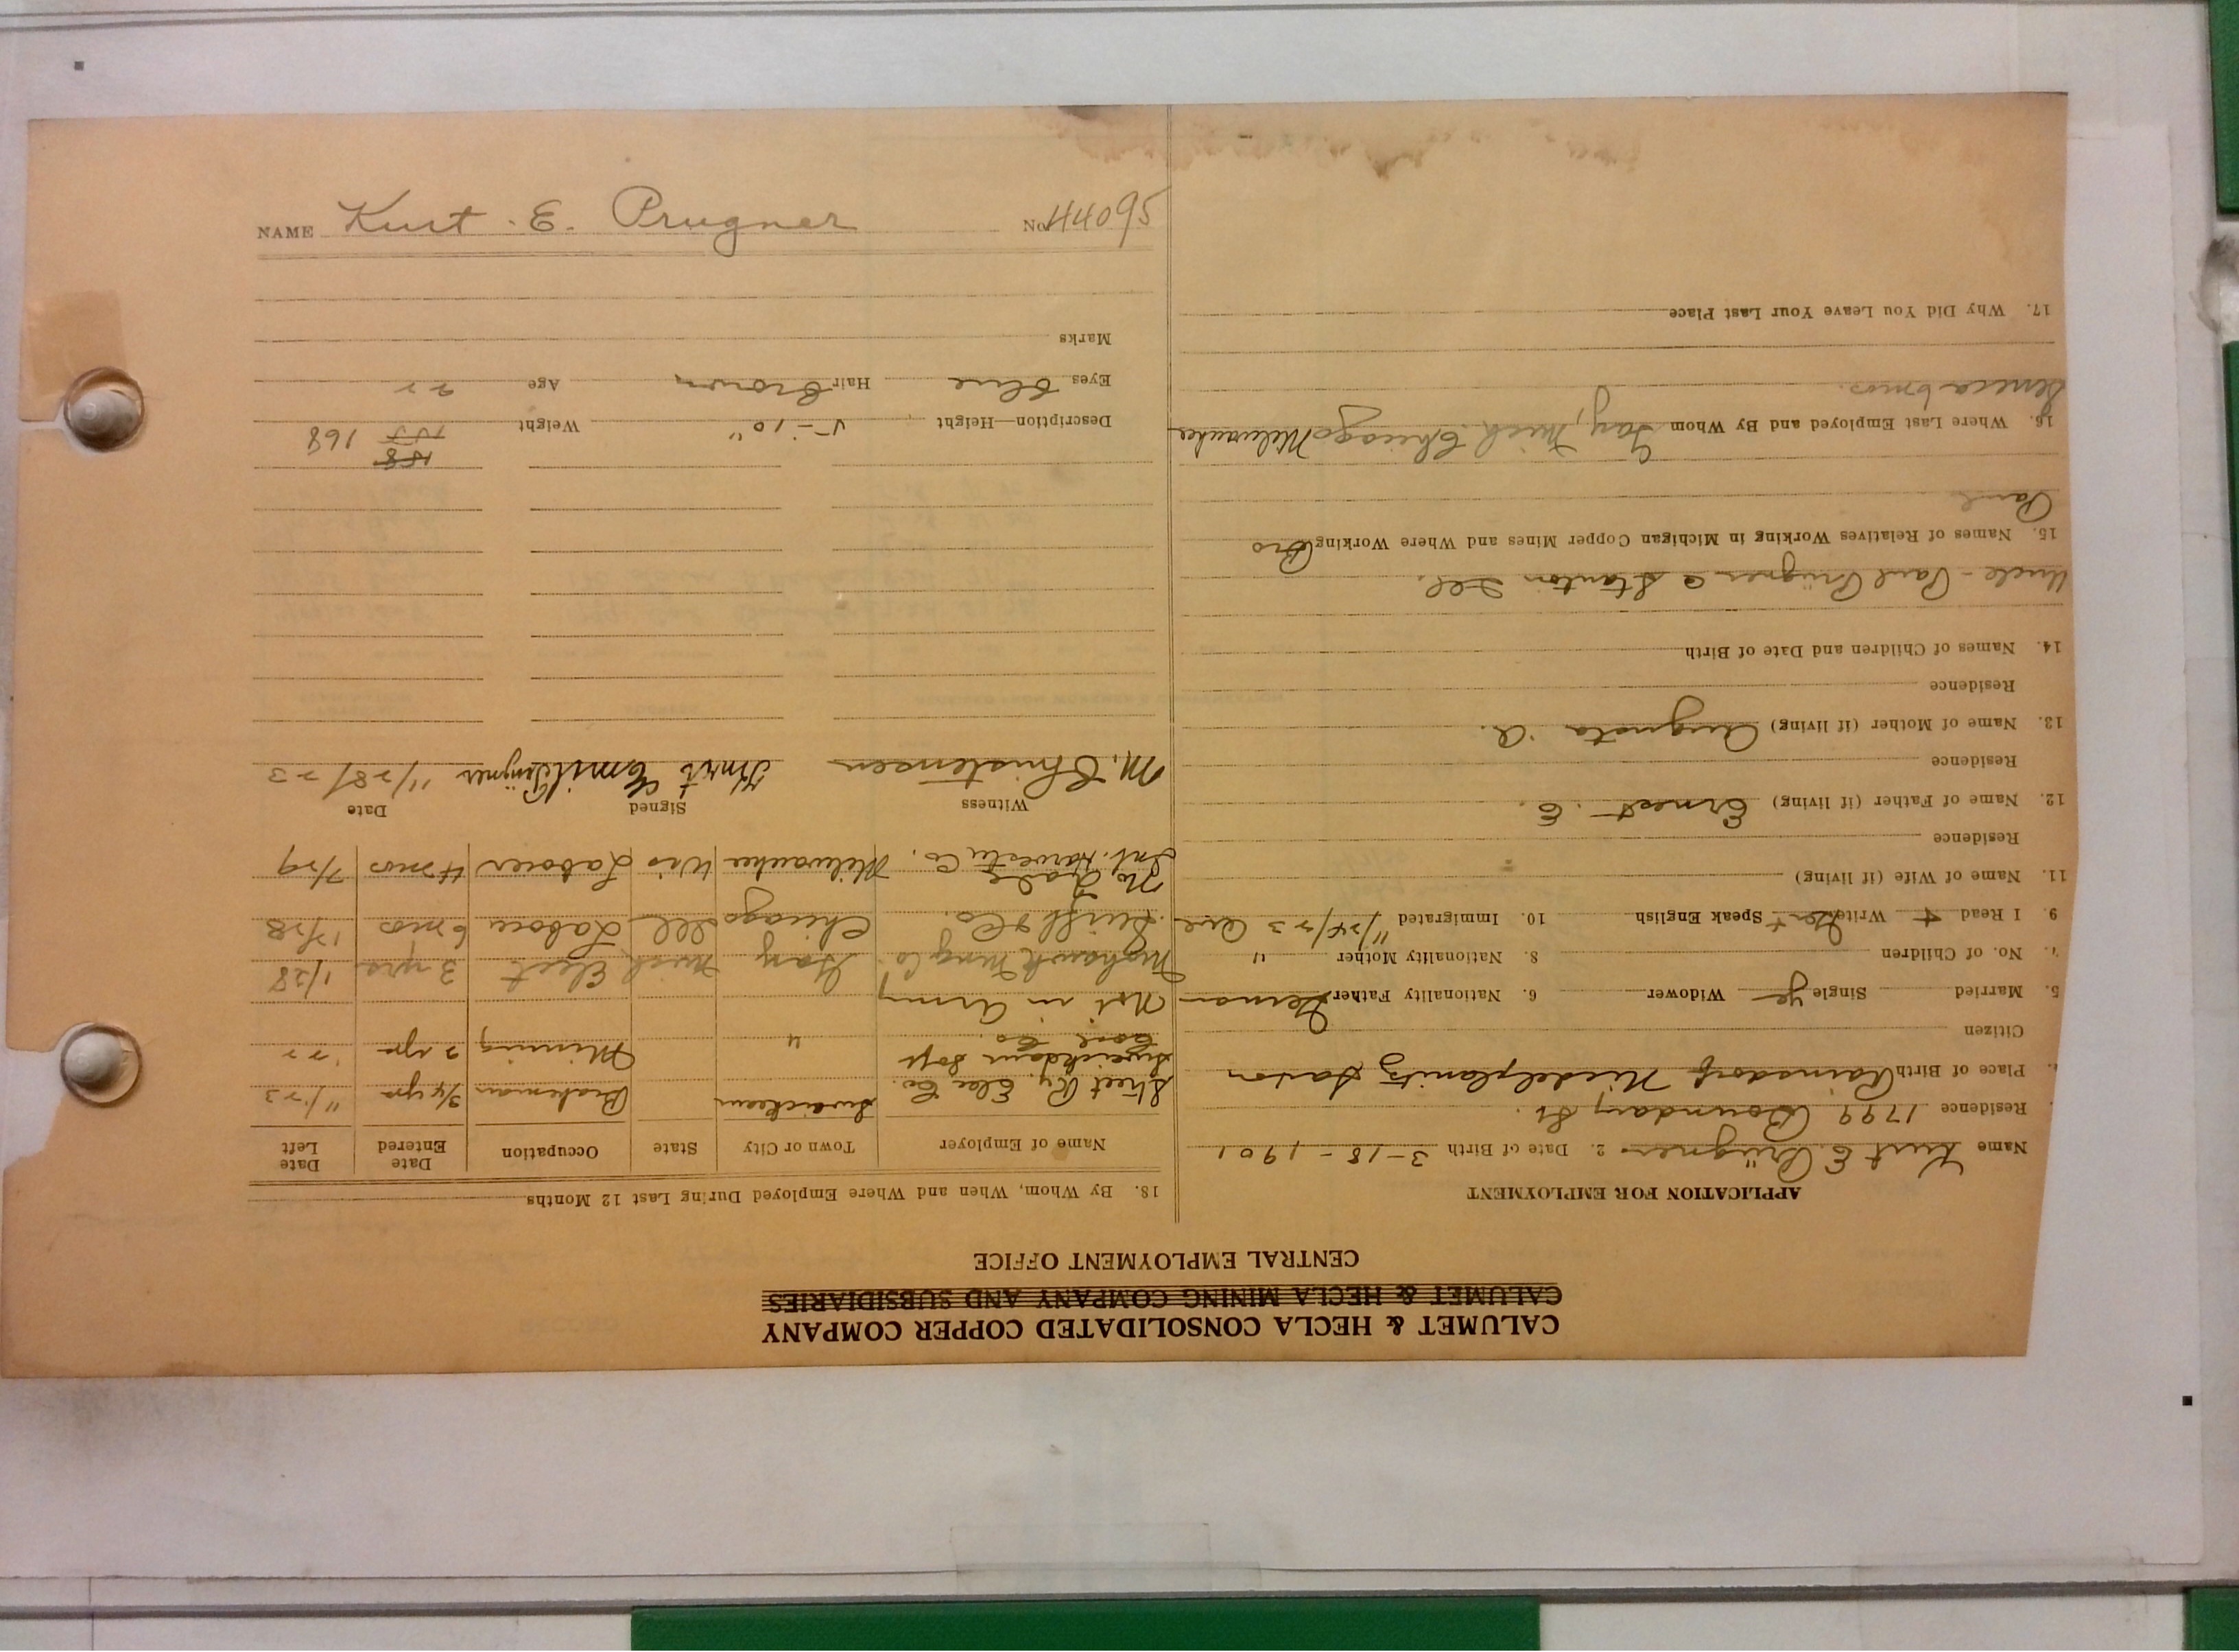 NAME Kurt E. Prugner No. 44095
CALUMET & HECLA CONSOLIDATED COPPER COMPANY
CALUMET & HECLA MINING COMPANY AND SUBSIDIARIES
CENTRAL EMPLOYMENT OFFICE
APPLICATION FOR EMPLOYMENT
Name Kurt E. Prügner 2. Date of Birth 3-18-1901
Residence 1799 Boundary St.
Place of Birth Rainsdorf Niedelplanitz Saxon
Citizen
5. Married Single ye Widower 6. Nationality Father German
No. of Children 8. Nationality Mother "
9. I Read + Write Speak English 10. Immigrated 11/24/23
11. Name of Wife (if living)
Residence
12. Name of Father (if living) Ernest E.
Residence
13. Name of Mother (if living) Augusta A.
Residence
14. Names of Children and Date of Birth
Uncle - Paul Prügner Stanton Ill.
15. Names of Relatives Working in Michigan Copper Mines and Where Working Bro
Paul
16. Where Last Employed and By Whom Gay, Mich. Chicago Milwaukee
Seneca 6 mos.
17. Why Did You Leave Your Last Place
18. By Whom, When and Where Employed During Last 12 Months
Name of Employer Town or City State Occupation Date Entered Date Left
Street Ry. Elec Co. Zwickau Brakeman 3/4 yr 11/23
Coal Co. " Mining 2 yr 22
Not in Army
Mohawk Mng Co. Gay Mich Elect. 3 yrs 1/28
Swift & Co. Chicago Ill Labor 6 mos 12/28
No Trade
Int. Harvester Co. Milwaukee Wis Laborer 4 mos 7/29
Witness Signed Date
M. Christensen Kurt Emil Prügner 11/28/23
158
Description—Height 5-10" Weight 155 168
Eyes blue Hair Brown Age 22
Marks